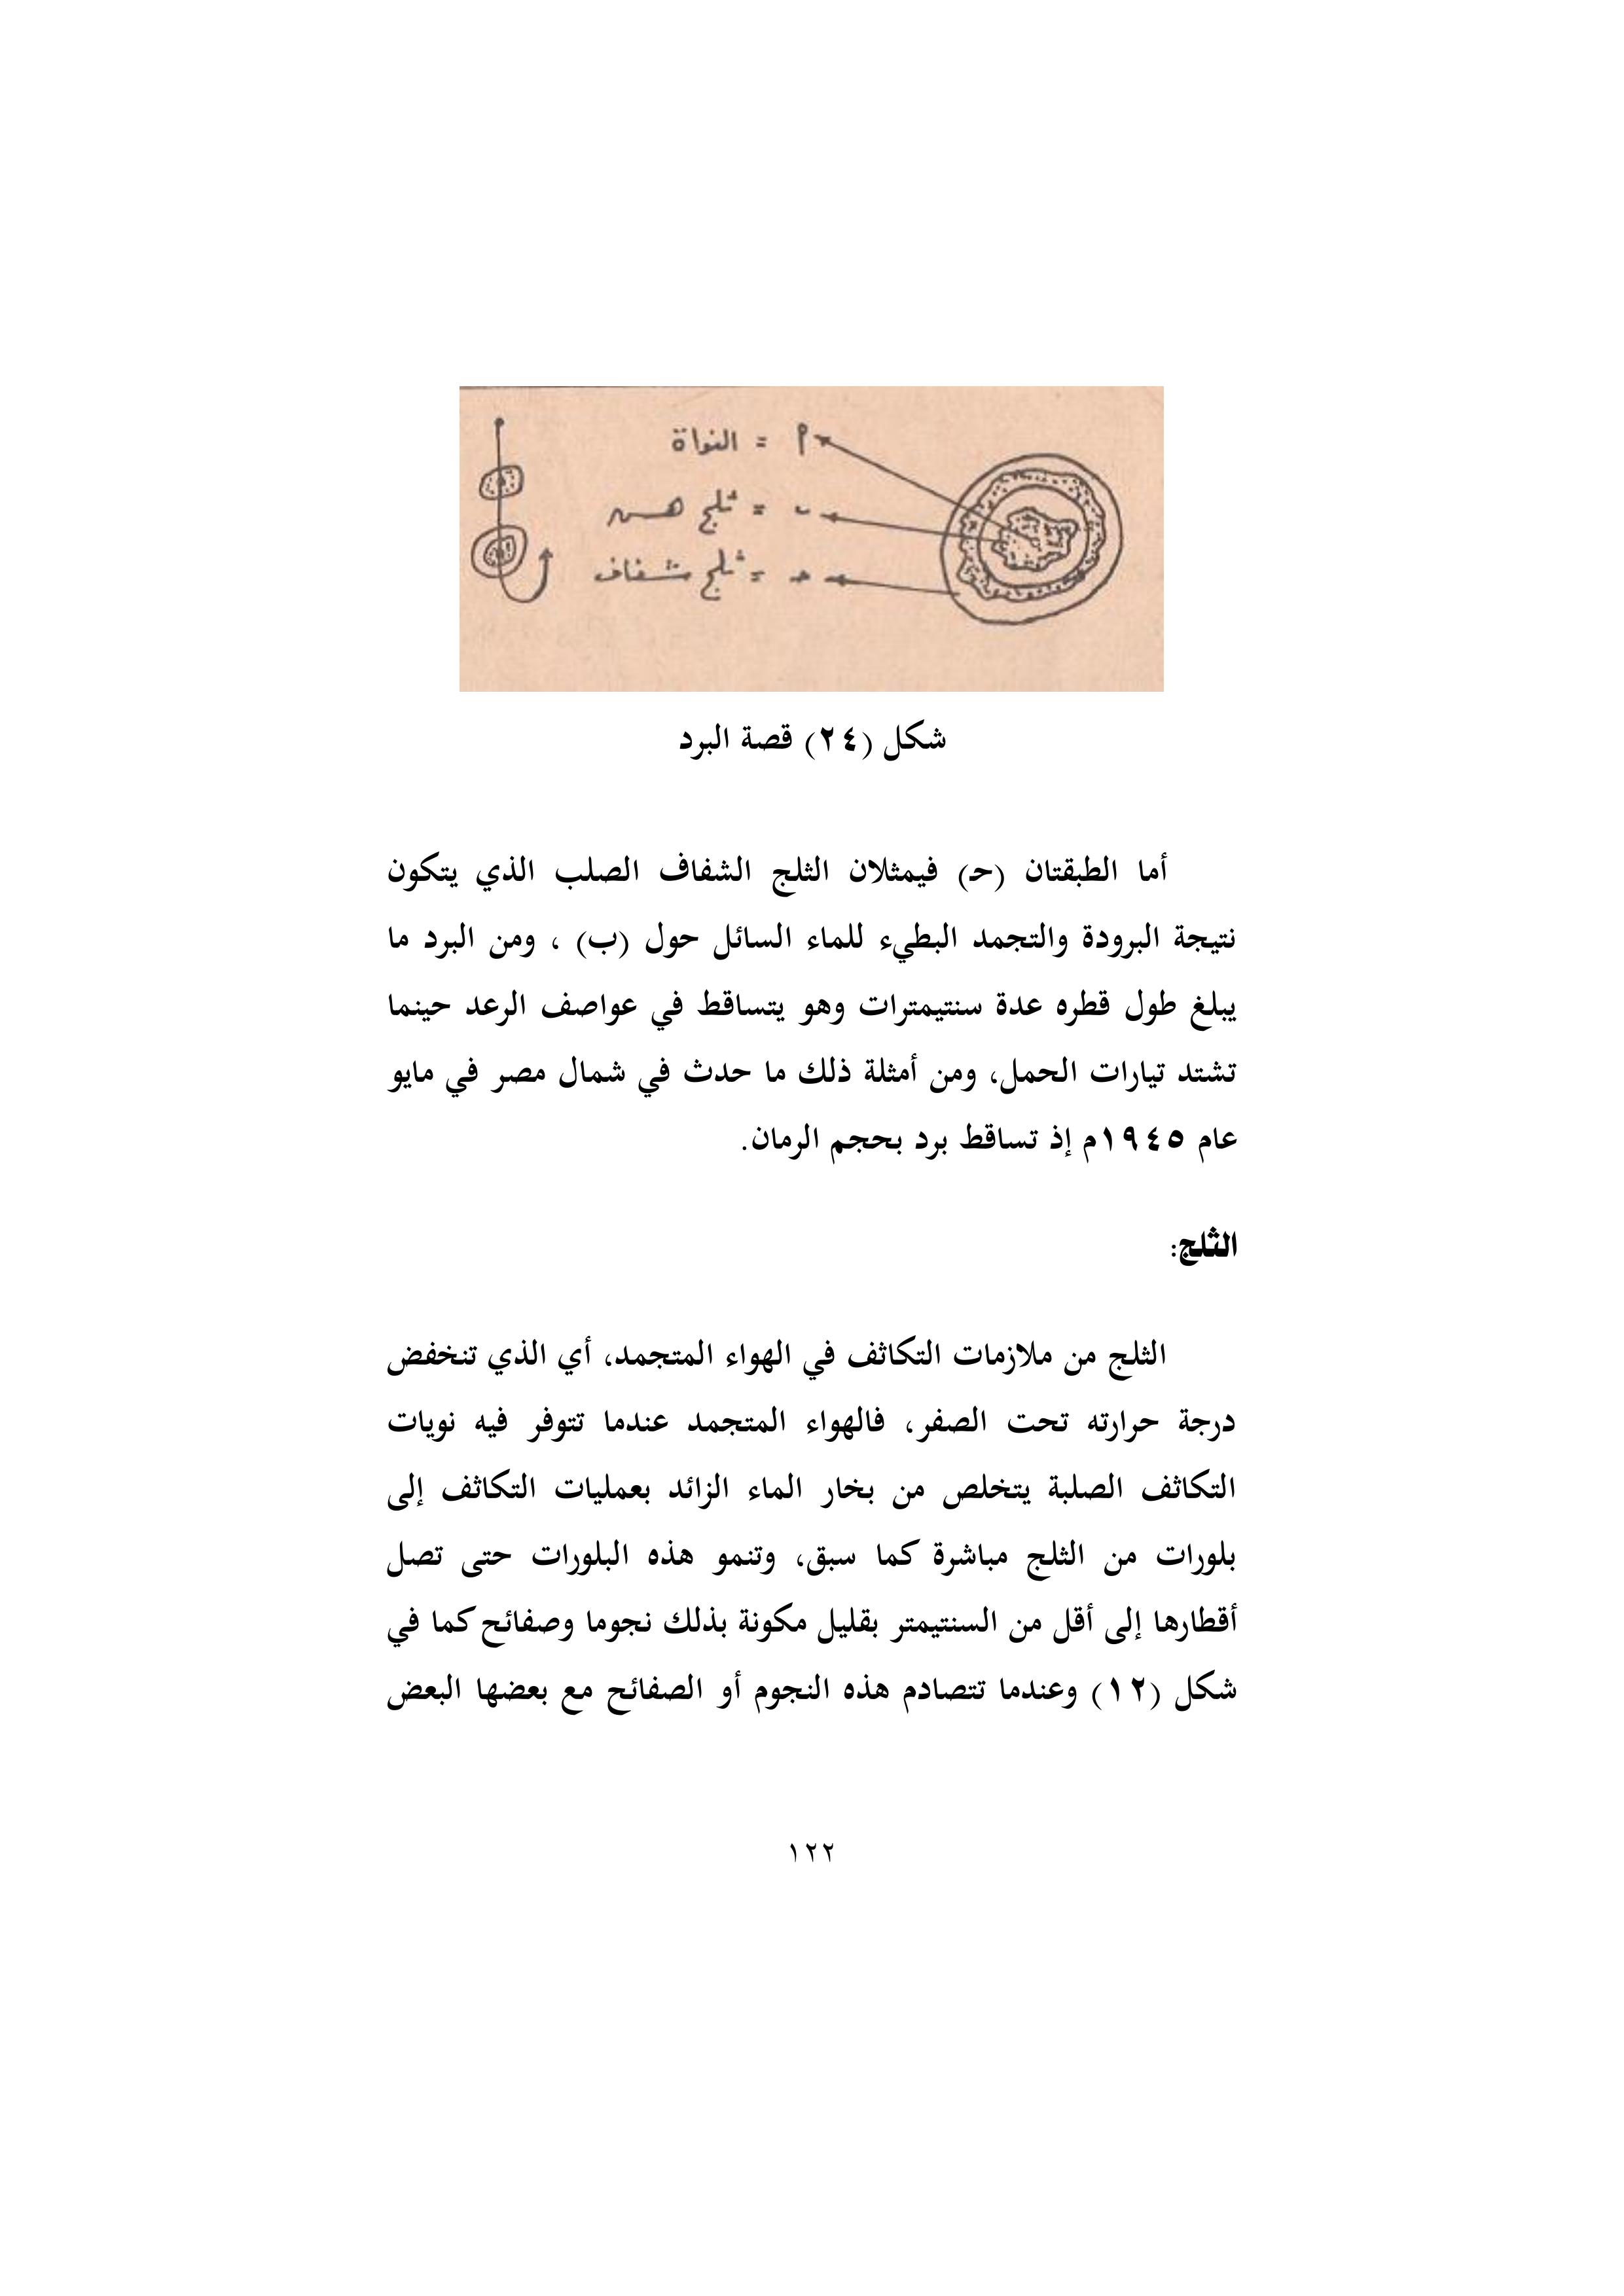 أ = النواة
ب = ثلج هش
حـ = ثلج شفاف
شكل (٢٤) قصة البرد
أما الطبقتان (حـ) فيمثلان الثلج الشفاف الصلب الذي يتكون
نتيجة البرودة والتجمد البطيء للماء السائل حول (ب) ، ومن البرد ما
يبلغ طول قطره عدة سنتيمترات وهو يتساقط في عواصف الرعد حينما
تشتد تيارات الحمل، ومن أمثلة ذلك ما حدث في شمال مصر في مايو
عام ١٩٤٥م إذ تساقط برد بحجم الرمان.
الثلج:
الثلج من ملازمات التكاثف في الهواء المتجمد، أي الذي تنخفض
درجة حرارته تحت الصفر، فالهواء المتجمد عندما تتوفر فيه نويات
التكاثف الصلبة يتخلص من بخار الماء الزائد بعمليات التكاثف إلى
بلورات من الثلج مباشرة كما سبق، وتنمو هذه البلورات حتى تصل
أقطارها إلى أقل من السنتيمتر بقليل مكونة بذلك نجوما وصفائح كما في
شكل (١٢) وعندما تتصادم هذه النجوم أو الصفائح مع بعضها البعض
١٢٢